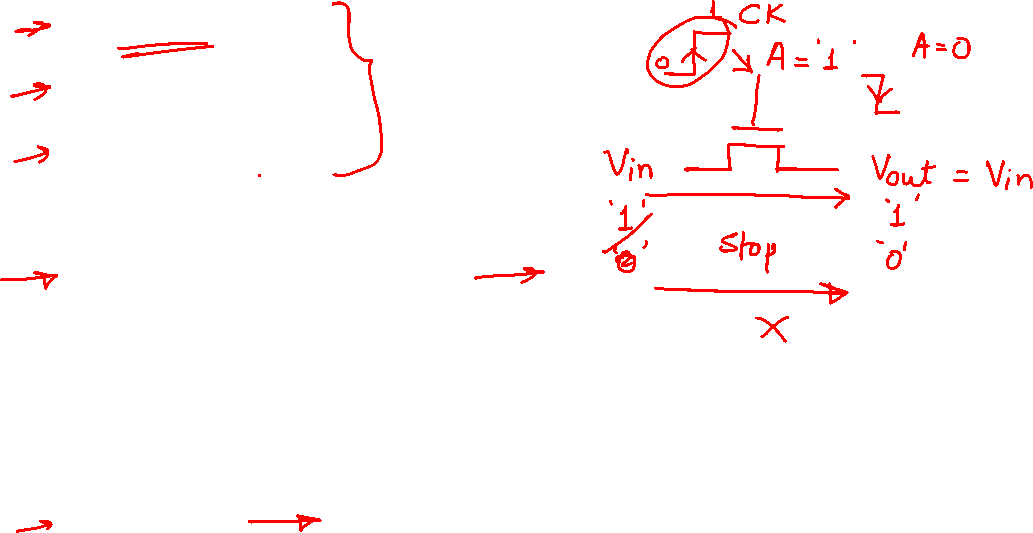 1 CK
0 A = '1' A = 0
Vin Vout = Vin
'1' '1'
Stop '0'
X